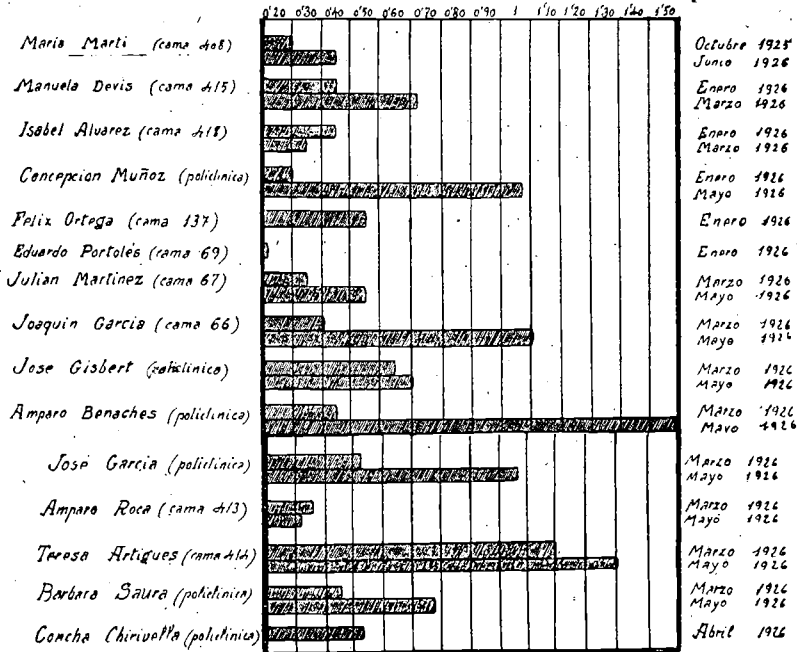 0'20 0'30 0'40 0'50 0'60 0'70 0'80 0'90 1 1'10 1'20 1'30 1'40 1'50
Maria Marti (cama 408) Octubre 1925
Junio 1926
Manuela Devis (cama 415) Enero 1926
Marzo 1926
Isabel Alvarez (cama 418) Enero 1926
Marzo 1926
Concepcion Muñoz (policlinica) Enero 1926
Mayo 1926
Felix Ortega (cama 137) Enero 1926
Eduardo Portolés (cama 69) Enero 1926
Julian Martinez (cama 67) Marzo 1926
Mayo 1926
Joaquin Garcia (cama 66) Marzo 1926
Mayo 1926
Jose Gisbert (policlinica) Marzo 1926
Mayo 1926
Amparo Benaches (policlinica) Marzo 1926
Mayo 1926
José Garcia (policlinica) Marzo 1926
Mayo 1926
Amparo Roca (cama 413) Marzo 1926
Mayo 1926
Teresa Artigues (cama 414) Marzo 1926
Mayo 1926
Barbara Saura (policlinica) Marzo 1926
Mayo 1926
Concha Chirivella (policlinica) Abril 1926